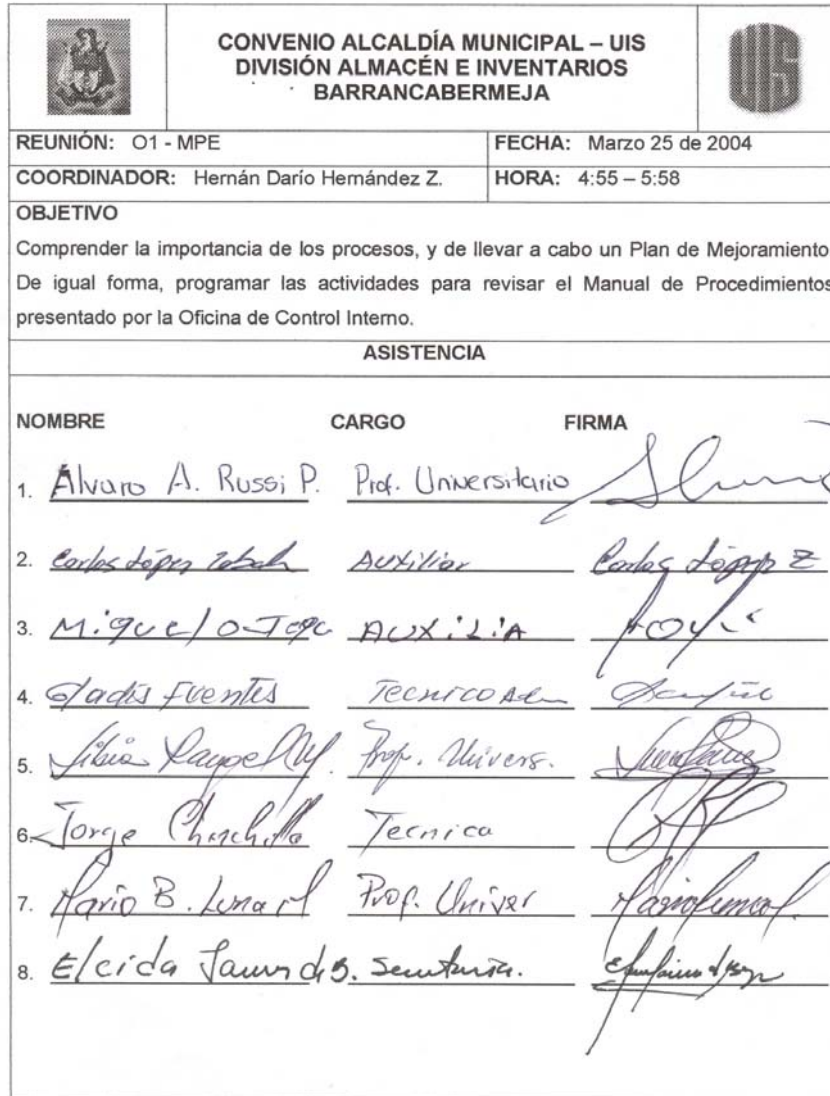 CONVENIO ALCALDÍA MUNICIPAL – UIS
DIVISIÓN ALMACÉN E INVENTARIOS
BARRANCABERMEJA
UIS
REUNIÓN: O1 - MPE FECHA: Marzo 25 de 2004
COORDINADOR: Hernán Darío Hernández Z. HORA: 4:55 – 5:58
OBJETIVO
Comprender la importancia de los procesos, y de llevar a cabo un Plan de Mejoramiento
De igual forma, programar las actividades para revisar el Manual de Procedimientos
presentado por la Oficina de Control Interno.
ASISTENCIA
NOMBRE CARGO FIRMA
1. Álvaro A. Russi P. Prof. Universitario
2. Carlos López Auxiliar Carlos López Z
3. Miguel Ortega AUXiLiA
4. Gladis Fuentes Tecnico Adm
5. Prof. Univers.
6. Jorge Chinchilla Tecnica
7. Mario B. Luna Prof. Univer
8. Elcida Secretaria.